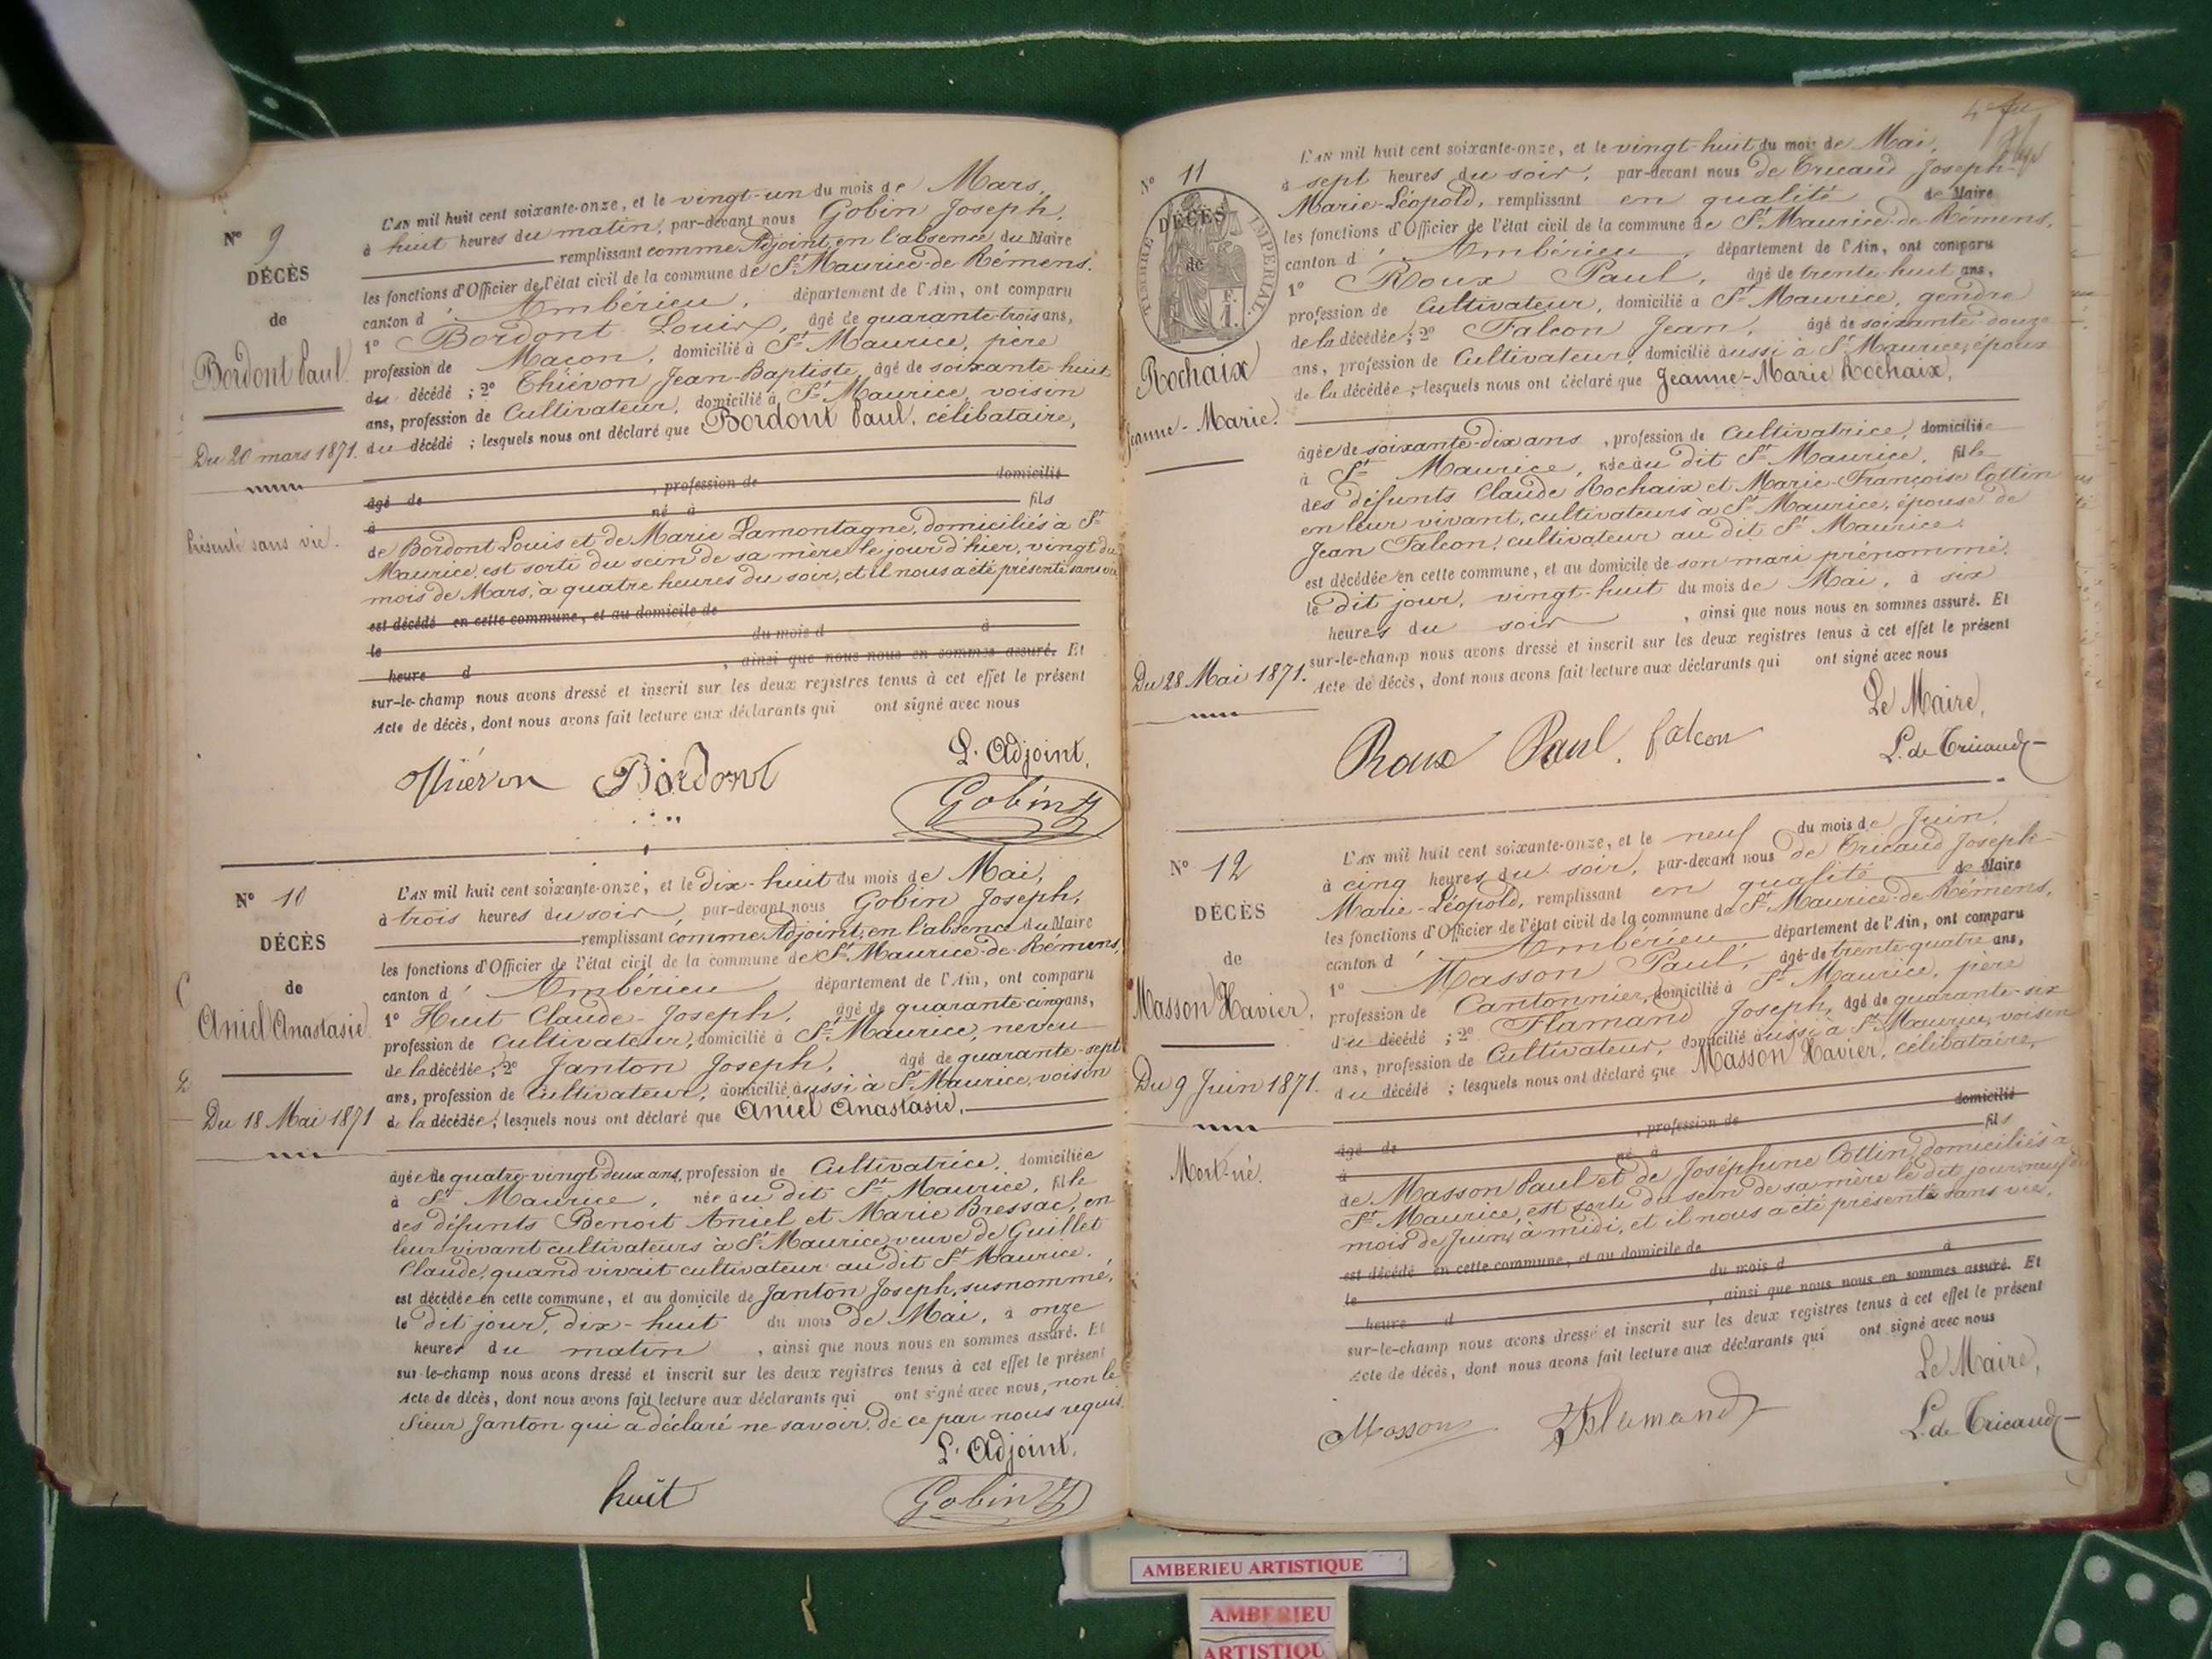 N° 9
DÉCÈS
de
Bordont Paul.
Du 20 mars 1871.
Présenté sans vie.
L'AN mil huit cent soixante-onze, et le vingt-un du mois de Mars,
à huit heures du matin, par-devant nous Gobin Joseph,
remplissant comme Adjoint, en l'absence du Maire
les fonctions d'Officier de l'état civil de la commune de St Maurice-de-Rémens.
canton d'Ambérieu, département de l'Ain, ont comparu
1° Bordont Louis, âgé de quarante-trois ans,
profession de Maçon, domicilié à St Maurice, père
du décédé ; 2° Thiévon Jean-Baptiste, âgé de soixante-huit
ans, profession de Cultivateur, domicilié à St Maurice, voisin
du décédé ; lesquels nous ont déclaré que Bordont Paul, célibataire,
âgé de , profession de domicilié
à né à fils
de Bordont Louis et de Marie Lamontagne, domiciliés à St
Maurice, est sorti du sein de sa mère le jour d'hier, vingt du
mois de Mars, à quatre heures du soir, et il nous a été présenté sans vie
est décédé en cette commune, et au domicile de
le du mois d à
heure d , ainsi que nous nous en sommes assuré. Et
sur-le-champ nous avons dressé et inscrit sur les deux registres tenus à cet effet le présent
Acte de décès, dont nous avons fait lecture aux déclarants qui ont signé avec nous
L'Adjoint,
Thiévon Bordont Gobin J
N° 10
DÉCÈS
de
Aniel Anastasie.
Du 18 Mai 1871
L'AN mil huit cent soixante-onze, et le dix-huit du mois de Mai,
à trois heures du soir, par-devant nous Gobin Joseph,
remplissant comme Adjoint, en l'absence du Maire
les fonctions d'Officier de l'état civil de la commune de St Maurice-de-Rémens,
canton d'Ambérieu département de l'Ain, ont comparu
1° Huit Claude-Joseph, âgé de quarante-cinq ans,
profession de Cultivateur, domicilié à St Maurice, neveu
de la décédée ; 2° Janton Joseph, âgé de quarante-sept
ans, profession de Cultivateur, domicilié aussi à St Maurice, voisin
de la décédée ; lesquels nous ont déclaré que Aniel Anastasie,
âgée de quatre-vingt-deux ans, profession de Cultivatrice, domiciliée
à St Maurice, née au dit St Maurice, fille
des défunts Benoit Aniel et Marie Bressac, en
leur vivant cultivateurs à St Maurice, veuve de Guillet
Claude, quand vivait cultivateur au dit St Maurice.
est décédée en cette commune, et au domicile de Janton Joseph, susnommé,
le dit jour, dix-huit du mois de Mai, à onze
heures du matin , ainsi que nous nous en sommes assuré. Et
sur-le-champ nous avons dressé et inscrit sur les deux registres tenus à cet effet le présent
Acte de décès, dont nous avons fait lecture aux déclarants qui ont signé avec nous, non le
Sieur Janton qui a déclaré ne savoir, de ce par nous requis.
L'Adjoint,
huit Gobin J
N° 11
DÉCÈS
de
TIMBRE IMPÉRIAL
Rochaix
Jeanne-Marie.
Du 28 Mai 1871.
L'AN mil huit cent soixante-onze, et le vingt-huit du mois de Mai,
à sept heures du soir, par-devant nous de Tricaud Joseph-
Marie-Léopold, remplissant en qualité de Maire
les fonctions d'Officier de l'état civil de la commune de St Maurice-de-Rémens,
canton d'Ambérieu, département de l'Ain, ont comparu
1° Roux Paul, âgé de trente-huit ans,
profession de Cultivateur, domicilié à St Maurice, gendre
de la décédée ; 2° Falcon Jean, âgé de soixante-douze
ans, profession de Cultivateur, domicilié aussi à St Maurice, époux
de la décédée ; lesquels nous ont déclaré que Jeanne-Marie Rochaix,
âgée de soixante-dix ans, profession de Cultivatrice, domiciliée
à St Maurice, née au dit St Maurice, fille
des défunts Claude Rochaix et Marie-Françoise Cottin
en leur vivant, cultivateurs à St Maurice, épouse de
Jean Falcon, cultivateur au dit St Maurice.
est décédée en cette commune, et au domicile de son mari prénommé,
le dit jour, vingt-huit du mois de Mai, à six
heures du soir , ainsi que nous nous en sommes assuré. Et
sur-le-champ nous avons dressé et inscrit sur les deux registres tenus à cet effet le présent
Acte de décès, dont nous avons fait lecture aux déclarants qui ont signé avec nous
Le Maire,
Roux Paul. falcon L. de Tricaud
N° 12
DÉCÈS
de
Masson Xavier.
Du 9 Juin 1871.
Mort-né.
L'AN mil huit cent soixante-onze, et le neuf du mois de Juin,
à cinq heures du soir, par-devant nous de Tricaud Joseph-
Marie-Léopold, remplissant en qualité de Maire
les fonctions d'Officier de l'état civil de la commune de St Maurice-de-Rémens,
canton d'Ambérieu département de l'Ain, ont comparu
1° Masson Paul, âgé de trente-quatre ans,
profession de Cantonnier, domicilié à St Maurice, père
du décédé ; 2° Flamand Joseph, âgé de quarante-six
ans, profession de Cultivateur, domicilié aussi à St Maurice, voisin
du décédé ; lesquels nous ont déclaré que Masson Xavier, célibataire,
âgé de , profession de domicilié
à né à fils
de Masson Paul et de Joséphine Cottin, domiciliés à
St Maurice, est sorti du sein de sa mère le dit jour, neuf du
mois de Juin, à midi, et il nous a été présenté sans vie.
est décédé en cette commune, et au domicile de
le du mois d à
heure d , ainsi que nous nous en sommes assuré. Et
sur-le-champ nous avons dressé et inscrit sur les deux registres tenus à cet effet le présent
Acte de décès, dont nous avons fait lecture aux déclarants qui ont signé avec nous
Le Maire,
Masson Flamand L. de Tricaud
AMBERIEU ARTISTIQUE
AMBERIEU
ARTISTIQU